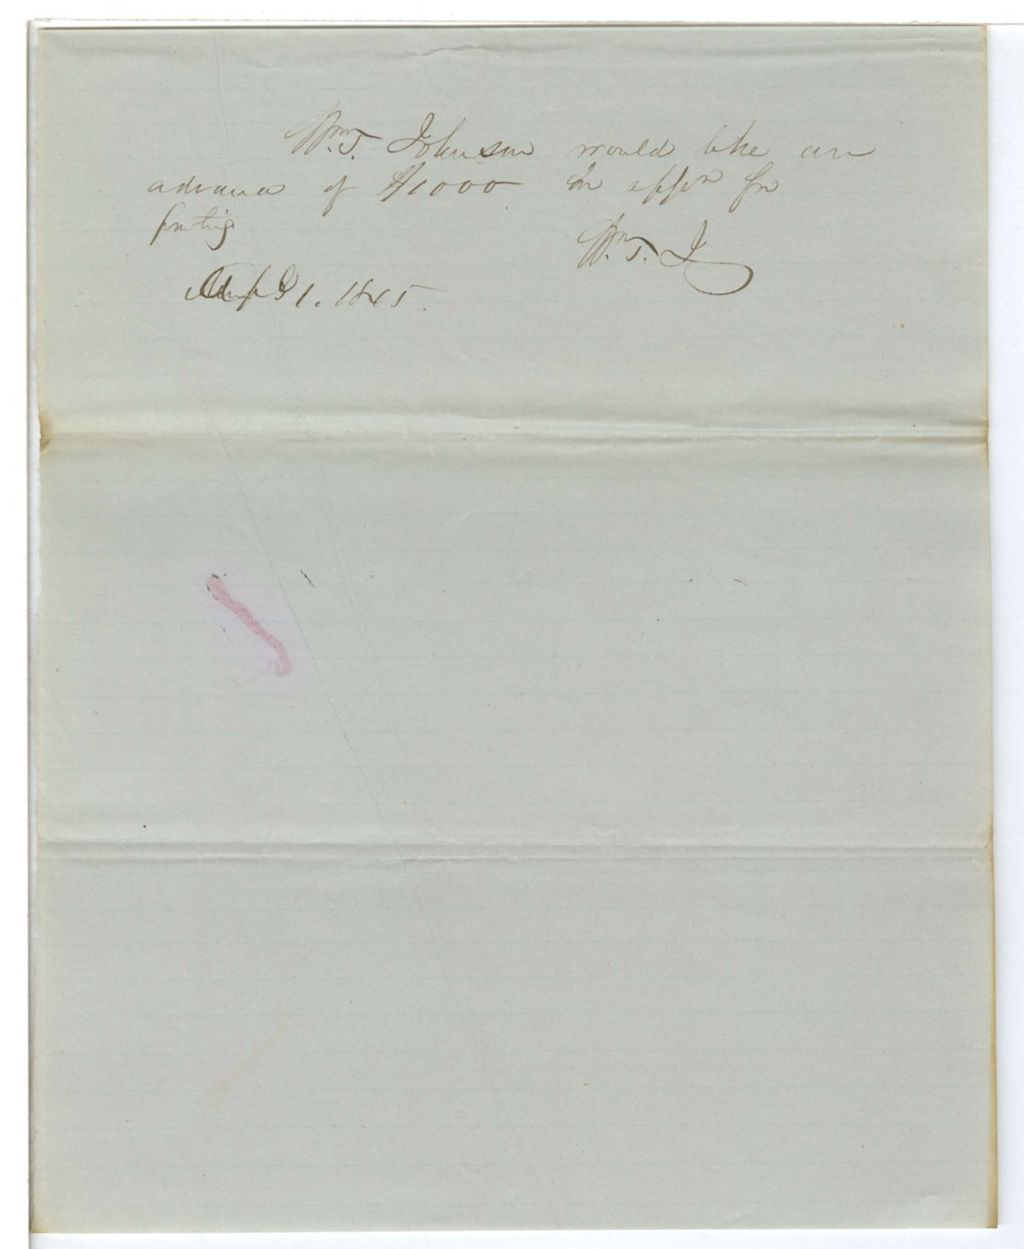 Wm. J. Johnson would like an
advance of $1000 on appn for
printing
Wm. J. J
1. 1845.